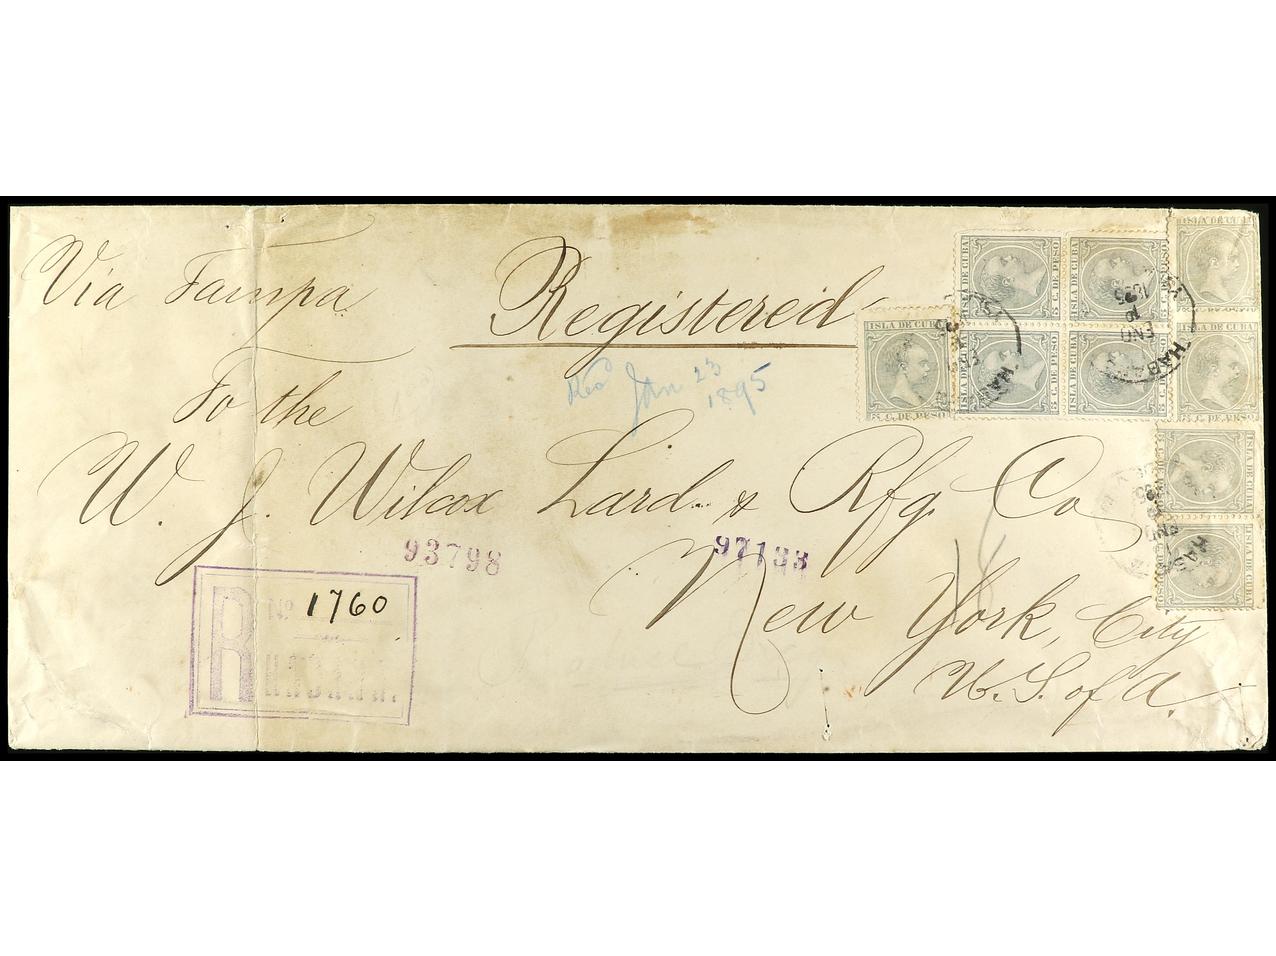 Via Tampa
Registered
To the
Rec'd Jan 23
1895
W. J. Wilcox Lard & Rfg. Co,
New York, City
U. S. of A.
93798
97133
R No. 1760
HABANA
ISLA DE CUBA
5 C. DE PESO
ISLA DE CUBA
5 C. DE PESO
ISLA DE CUBA
ISLA DE CUBA
5 C. DE PESO
ISLA DE CUBA
5 C. DE PESO
ISLA DE CUBA
5 C. DE PESO
ISLA DE CUBA
5 C. DE PESO
ISLA DE CUBA
ISLA DE CUBA
HABA
ENO
10
1895